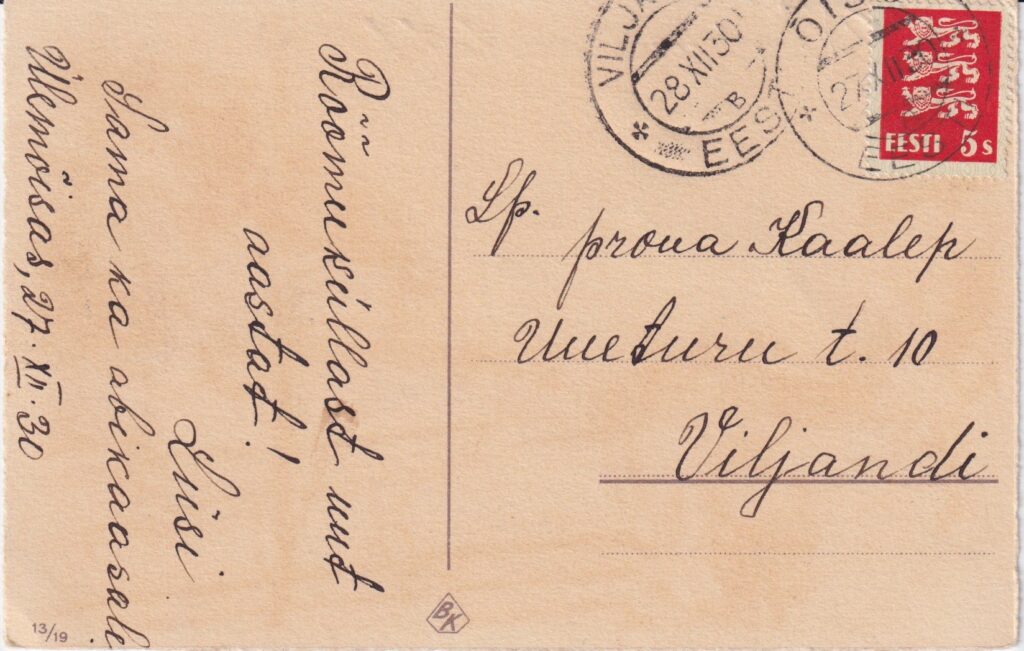 Rõõmuküllast uut
aastat!
Liisi
Sama ka abikaasale
Ülemõisas, 27. XII. 30
13/19
BK
VILJA
28 XII 30
B
EESTI
27 XII 30
EESTI
EESTI 5 s
Lp. proua Kaalep
Uueturu t. 10
Viljandi